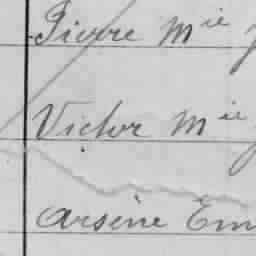 Pierre Mie
Victor Mie
Arsène Em